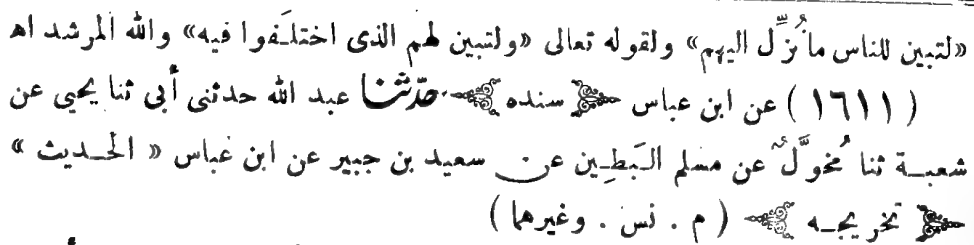 «لتبين للناس ما نُزِّل اليهم» ولقوله تعالى «ولتبين لهم الذى اختلفوا فيه» والله المرشد اه
(١٦١١) عن ابن عباس سنده حدّثنا عبد الله حدثنى أبى ثنا يحيى عن
شعبة ثنا مُخوَّلٌ عن مسلم البَطِين عن سعيد بن جبير عن ابن عباس «الحديث»
تخريجه (م . نس . وغيرهما)